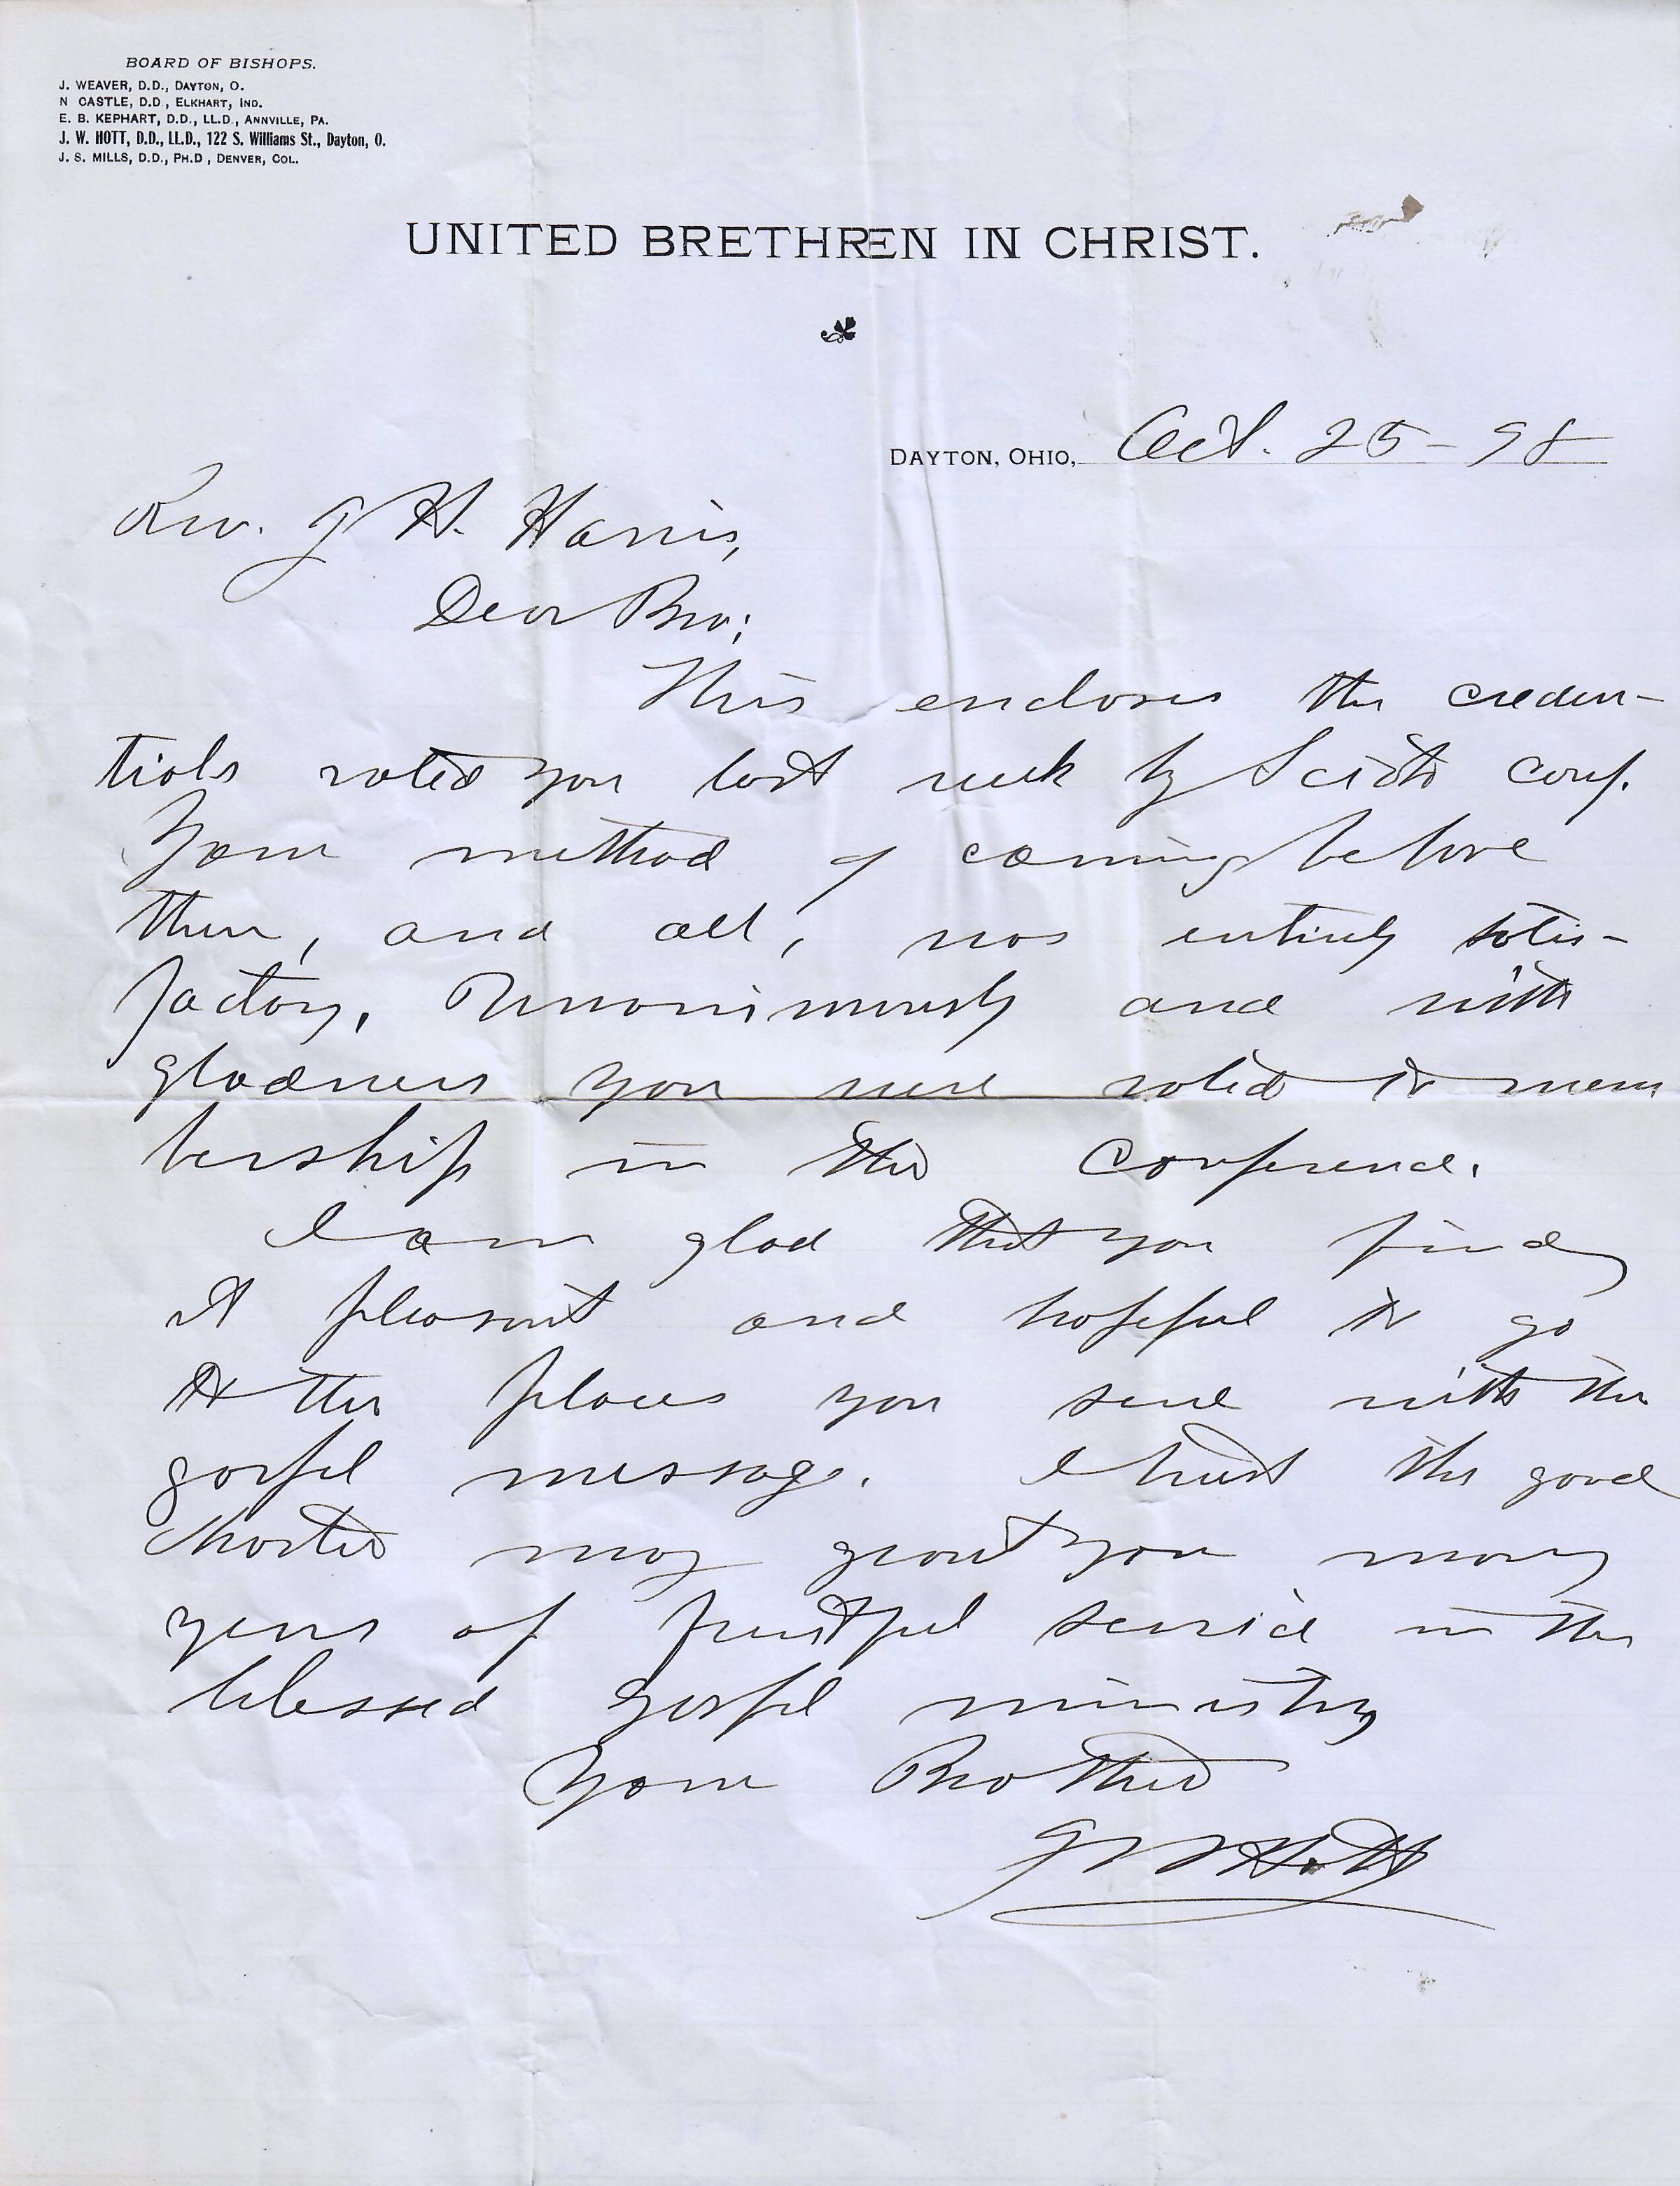 BOARD OF BISHOPS.
J. WEAVER, D.D., DAYTON, O.
N CASTLE, D.D., ELKHART, IND.
E. B. KEPHART, D.D., LL.D., ANNVILLE, PA.
J. W. HOTT, D.D., LL.D., 122 S. Williams St., Dayton, O.
J. S. MILLS, D.D., PH.D, DENVER, COL.
UNITED BRETHREN IN CHRIST.
DAYTON, OHIO, Oct. 25-98
Rev. J H. Harris,
Dear Bro;
This encloses the creden-
tials voted you last week by Scioto Conf.
Your method of coming before
them, and all, was entirely satis-
factory. Unanimously and with
gladness you were voted to mem
bership in the Conference.
I am glad that you find
it pleasant and hopeful to go
to the places you serve with the
gospel message. I trust the good
Master may grant you many
years of fruitful service in the
blessed gospel ministry
Your Brother
J W Hott